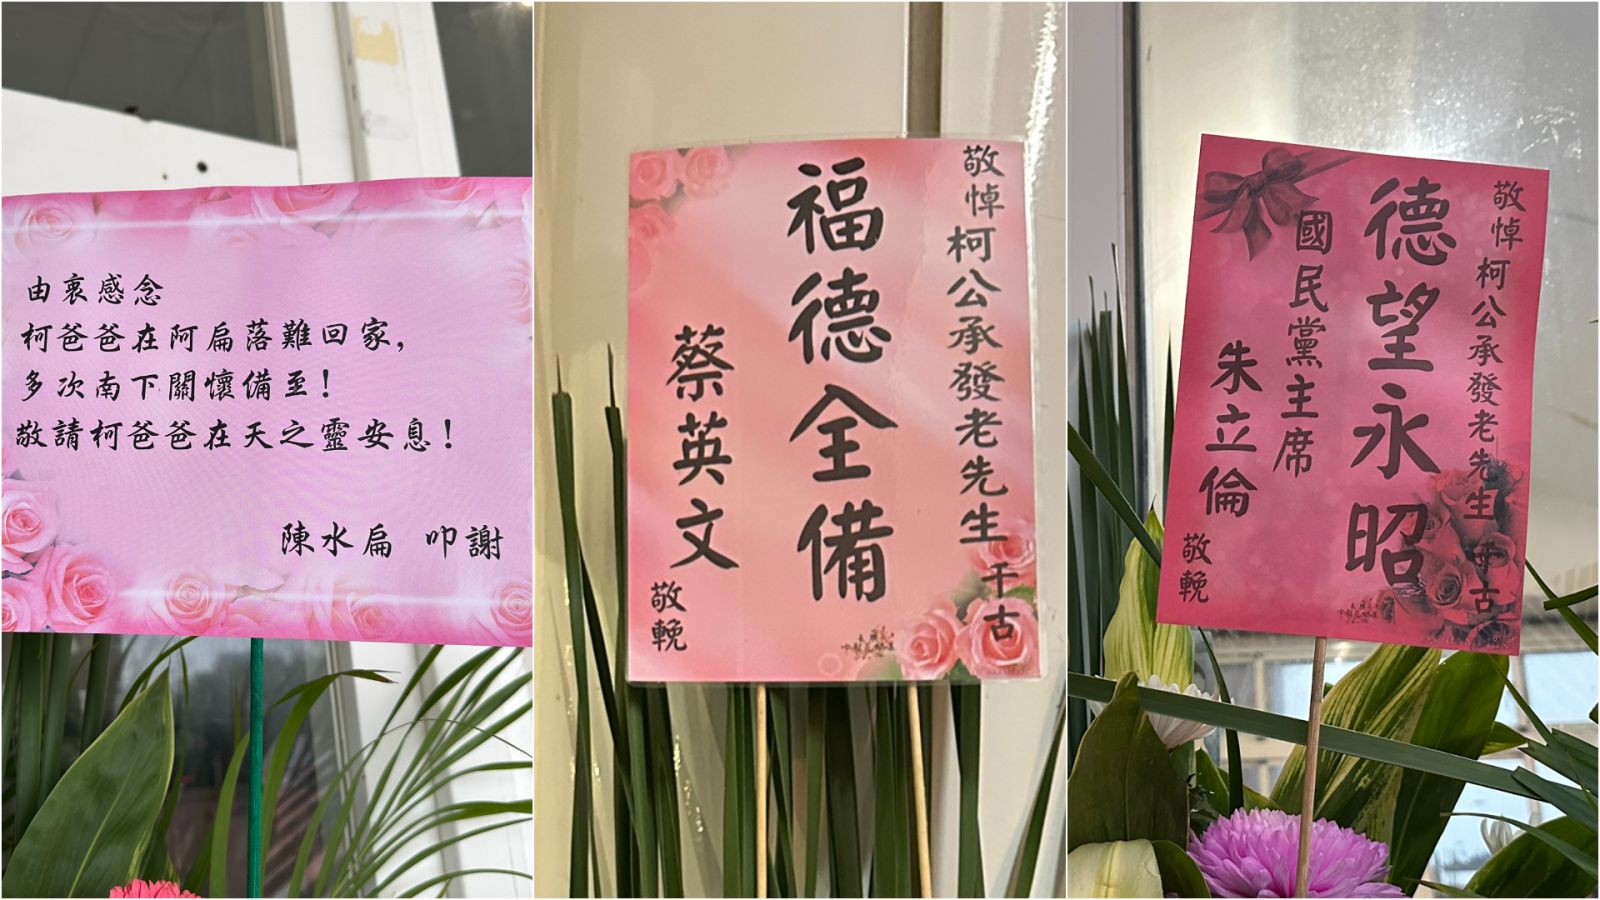 由衷感念
柯爸爸在阿扁落難回家，
多次南下關懷備至！
敬請柯爸爸在天之靈安息！
陳水扁 叩謝
敬悼柯公承發老先生千古
福德全備
蔡英文敬輓
敬悼柯公承發老先生千古
德望永昭
國民黨主席
朱立倫敬輓